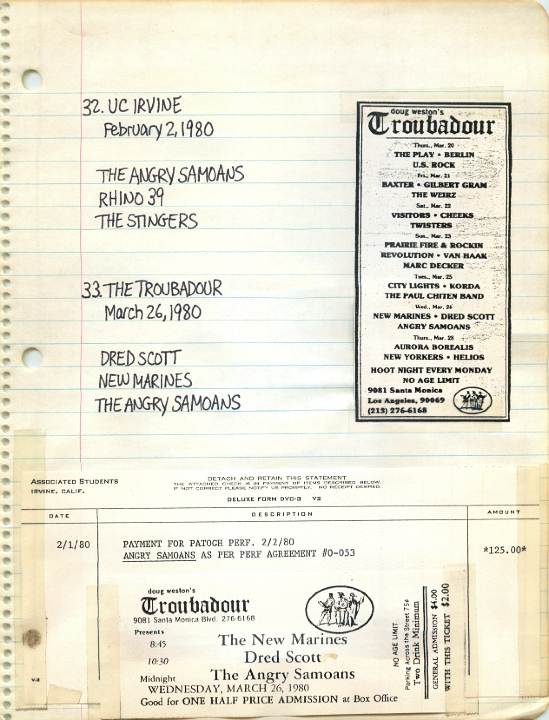 32. UC IRVINE
February 2, 1980
THE ANGRY SAMOANS
RHINO 39
THE STINGERS
33. THE TROUBADOUR
March 26, 1980
DRED SCOTT
NEW MARINES
THE ANGRY SAMOANS
doug weston's
Troubadour
Thurs., Mar. 20
THE PLAY • BERLIN
U.S. ROCK
Fri., Mar. 21
BAXTER • GILBERT GRAM
THE WEIRZ
Sat., Mar. 22
VISITORS • CHEEKS
TWISTERS
Sun., Mar. 23
PRAIRIE FIRE & ROCKIN
REVOLUTION • VAN HAAK
MARC DECKER
Tues., Mar. 25
CITY LIGHTS • KORDA
THE PAUL CHITEN BAND
Wed., Mar. 26
NEW MARINES • DRED SCOTT
ANGRY SAMOANS
Thurs., Mar. 28
AURORA BOREALIS
NEW YORKERS • HELIOS
HOOT NIGHT EVERY MONDAY
NO AGE LIMIT
9081 Santa Monica
Los Angeles, 90069
(213) 276-6168
ASSOCIATED STUDENTS
IRVINE, CALIF.
DETACH AND RETAIN THIS STATEMENT
THE ATTACHED CHECK IS IN PAYMENT OF ITEMS DESCRIBED BELOW.
IF NOT CORRECT PLEASE NOTIFY US PROMPTLY. NO RECEIPT DESIRED.
DELUXE FORM DVC-3 V2
DATE DESCRIPTION AMOUNT
2/1/80 PAYMENT FOR PATOGH PERF. 2/2/80 *125.00*
ANGRY SAMOANS AS PER PERF AGREEMENT #0-053
doug weston's
Troubadour
9081 Santa Monica Blvd. 276-6168
Presents
8:45 The New Marines
10:30 Dred Scott
Midnight The Angry Samoans
WEDNESDAY, MARCH 26, 1980
Good for ONE HALF PRICE ADMISSION at Box Office
NO AGE LIMIT
Parking Across the Street 75¢
Two Drink Minimum
GENERAL ADMISSION $4.00
WITH THIS TICKET $2.00
V-2